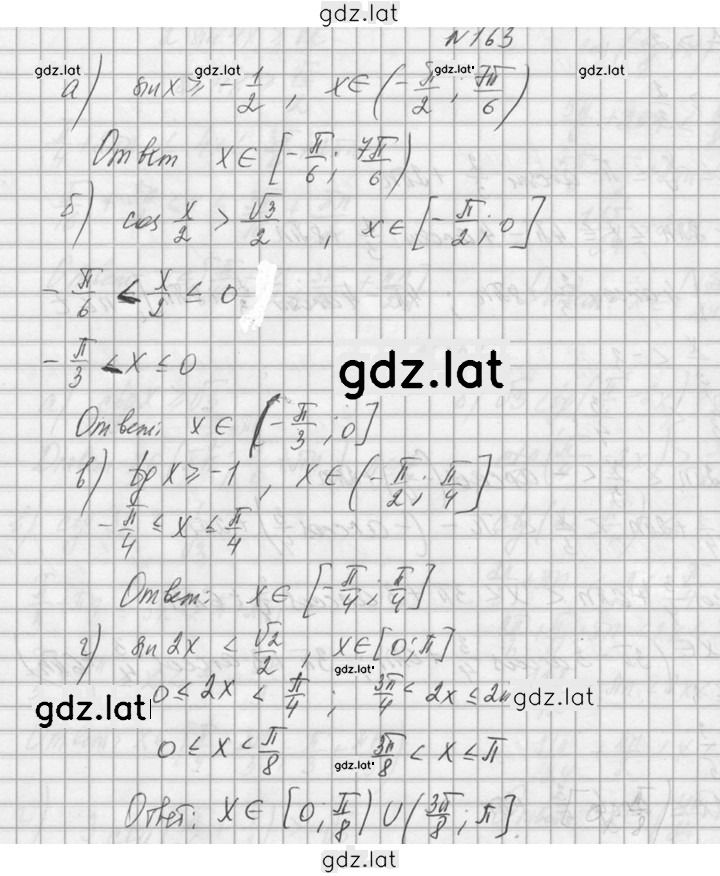 gdz.lat
№163
gdz.lat gdz.lat gdz.lat
а) sin x ≥ -1/2 , x ∈ (-π/2 ; 7π/6)
Ответ x ∈ [-π/6 ; 7π/6)
б) cos x/2 > √3/2 , x ∈ [-π/2 ; 0]
-π/6 < x/2 ≤ 0
-π/3 < x ≤ 0
gdz.lat
Ответ: x ∈ (-π/3 ; 0]
в) tg x ≥ -1 , x ∈ (-π/2 ; π/4]
-π/4 ≤ x ≤ π/4
Ответ: x ∈ [-π/4 ; π/4]
г) sin 2x < √2/2 , x ∈ [0; π]
gdz.lat
0 ≤ 2x < π/4 ; 3π/4 < 2x ≤ 2π
gdz.lat gdz.lat
0 ≤ x < π/8 3π/8 < x ≤ π
gdz.lat
Ответ: x ∈ [0, π/8) ∪ (3π/8 ; π].
gdz.lat